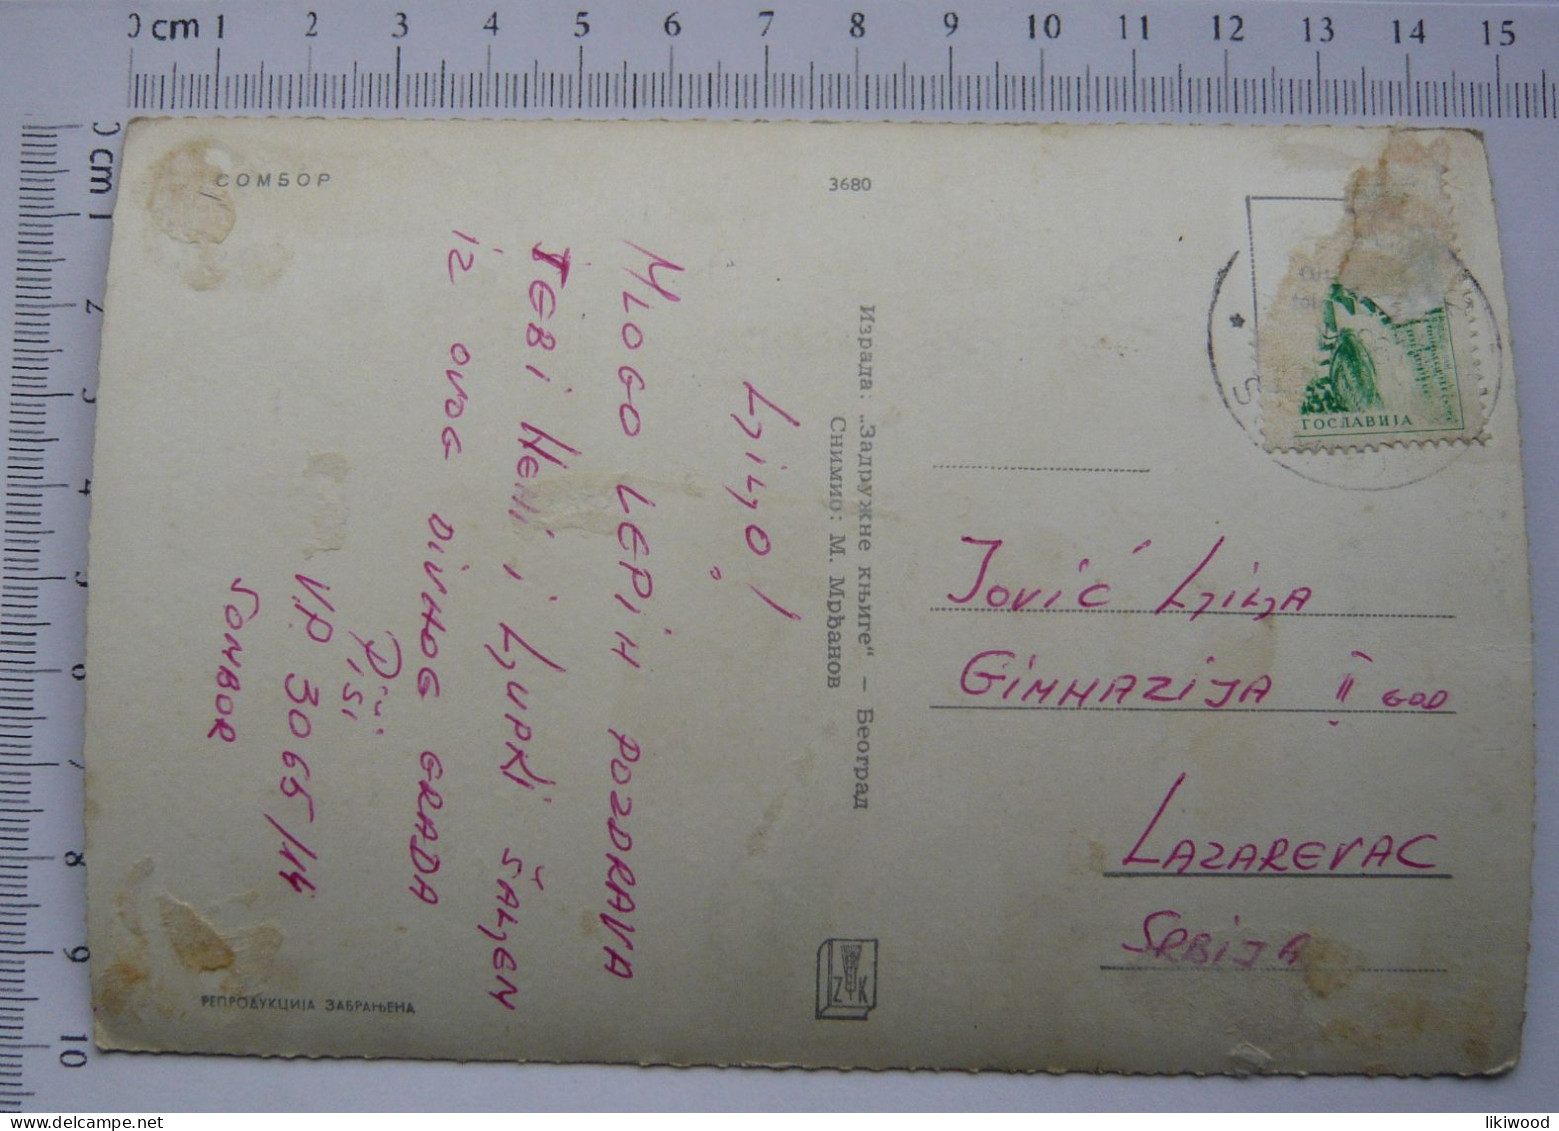 0 cm 1 2 3 4 5 6 7 8 9 10 11 12 13 14 15
0 cm 1 2 3 4 5 6 7 8 9 10
СОМБОР
3680
Ljiljo!
Mlogo lepih pozdrava
Tebi Neni i Ljupki šaljem
iz ovog divnog grada
Piši
VP 3065/14
Sombor
РЕПРОДУКЦИЈА ЗАБРАЊЕНА
Израда: „Задружне књиге“ – Београд
Снимио: М. Мрђанов
Z K
ГОСЛАВИЈА
Jović Ljilja
Gimnazija II god
Lazarevac
Srbija
likiwood